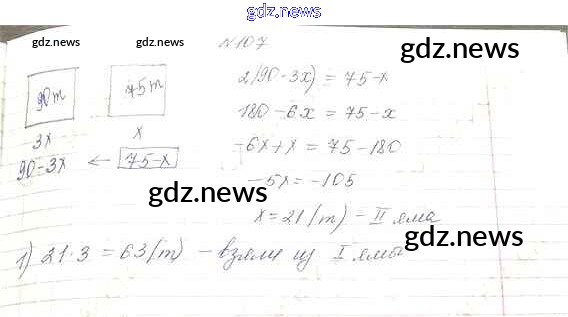 gdz.news
gdz.news
gdz.news
№107
gdz.news
90 т
75 т
2(90-3x) = 75-x
180-6x = 75-x
3x
x
-6x+x = 75-180
90-3x ← 75-x
-5x = -105
gdz.news
x = 21 (т) - II яма
gdz.news
1) 21·3 = 63 (т) - взяли из I ямы